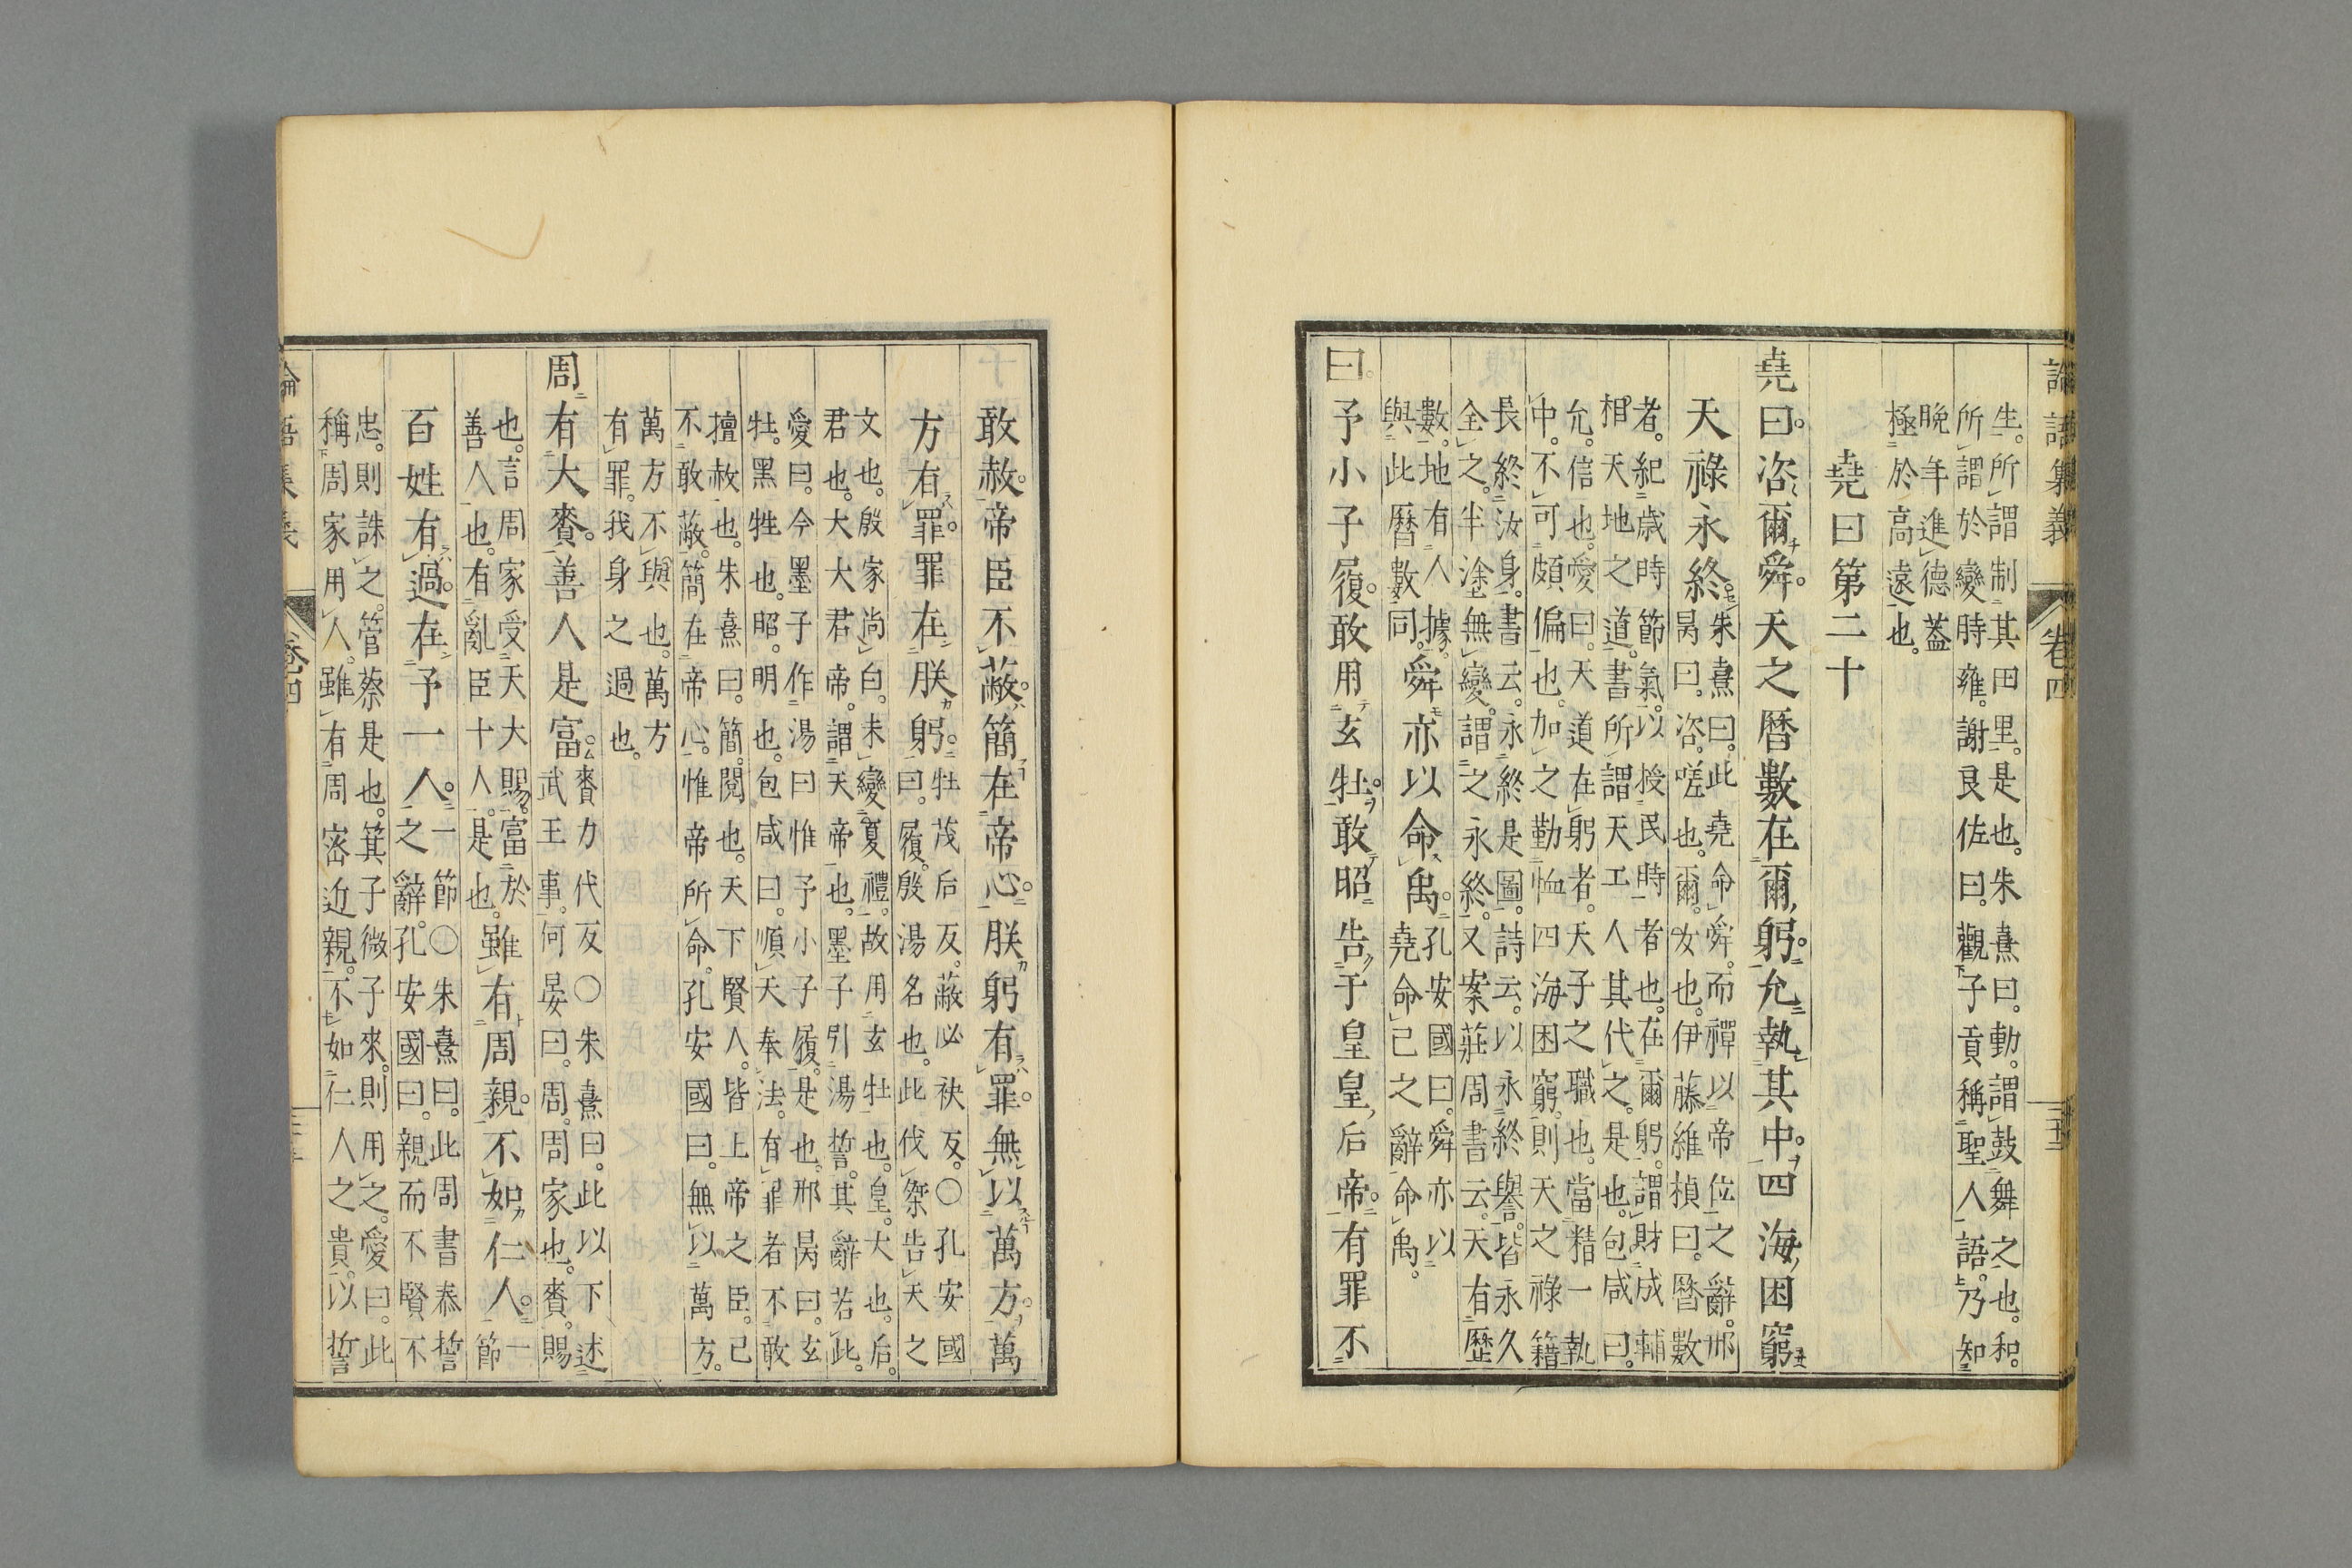 論語集義
卷四
生。所謂制其田里。是也。朱熹曰。動。謂鼓舞之也。和。
所謂於變時雍。謝良佐曰。觀子貢稱聖人語。乃知
晚年進德蓋
極於高遠也。
堯曰第二十
堯曰。咨爾舜。天之曆數在爾躬。允執其中。四海困窮
天祿永終。
朱熹曰。此堯命舜。而禪以帝位之辭。邢
昺曰。咨。嗟也。爾。女也。伊藤維楨曰。曆數
者。紀歲時節氣。以授民時者也。在爾躬。謂財成輔
相天地之道。書所謂天工人其代之。是也。包咸曰。
允。信也。愛曰。天道在躬者。天子之職也。當精一執
中。不可頗偏也。加之勤恤四海困窮。則天之祿籍
長終汝身。書云。永終是圖。詩云。以永終譽。皆永久
全之。半塗無變。謂之永終。又案莊周書云。天有歷
數。地有人據。
與此曆數同。
舜亦以命禹。
孔安國曰。舜亦以
堯命己之辭命禹。
曰。予小子履。敢用玄牡。敢昭告于皇皇后帝。有罪不
敢赦。帝臣不蔽。簡在帝心。朕躬有罪。無以萬方。萬
方有罪。罪在朕躬。
牡茂后反。蔽必袂反。〇孔安國
曰。履。殷湯名也。此伐桀告天之
文也。殷家尚白。未變夏禮。故用玄牡也。皇。大也。后。
君也。大大君帝。謂天帝也。墨子引湯誓。其辭若此。
愛曰。今墨子作湯曰惟予小子履。是也。邢昺曰。玄
牡。黑牲也。昭。明也。包咸曰。順天奉法。有罪者不敢
擅赦也。朱熹曰。簡。閱也。天下賢人。皆上帝之臣。己
不敢蔽。簡在帝心。惟帝所命。孔安國曰。無以萬方。
萬方不與也。萬方
有罪。我身之過也。
周有大賚。善人是富。
賚力代反〇朱熹曰。此以下述
武王事。何晏曰。周。周家也。賚。賜
也。言周家受天大賜。富於
善人也。有亂臣十人。是也。
雖有周親。不如仁人。
一
節
百姓有過。在予一人。
一節〇朱熹曰。此周書泰誓
之辭。孔安國曰。親而不賢不
忠。則誅之。管蔡是也。箕子微子來。則用之。愛曰。此
稱周家用人。雖有周密近親。不如仁人之貴。以誓
論語集義
卷四